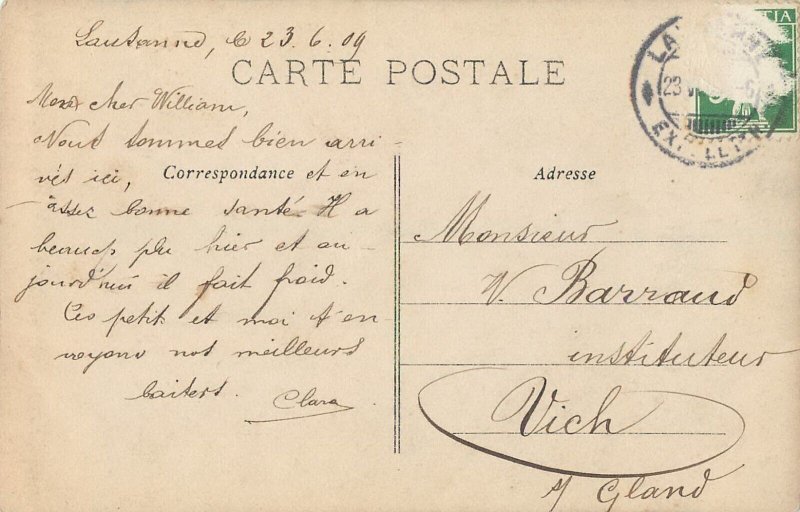 Lausanne, le 23.6.09
CARTE POSTALE
Mon cher William,
Nous sommes bien arri-
vés ici, et en
assez bonne santé. Il a
beaucoup plu hier et au-
jourd'hui il fait froid.
Les petits et moi t'en
voyons nos meilleurs
baisers.
Clara
Correspondance
Adresse
Monsieur
W. Barraud
instituteur
Vich
s/ Gland
LA
23
EXP. LETT.